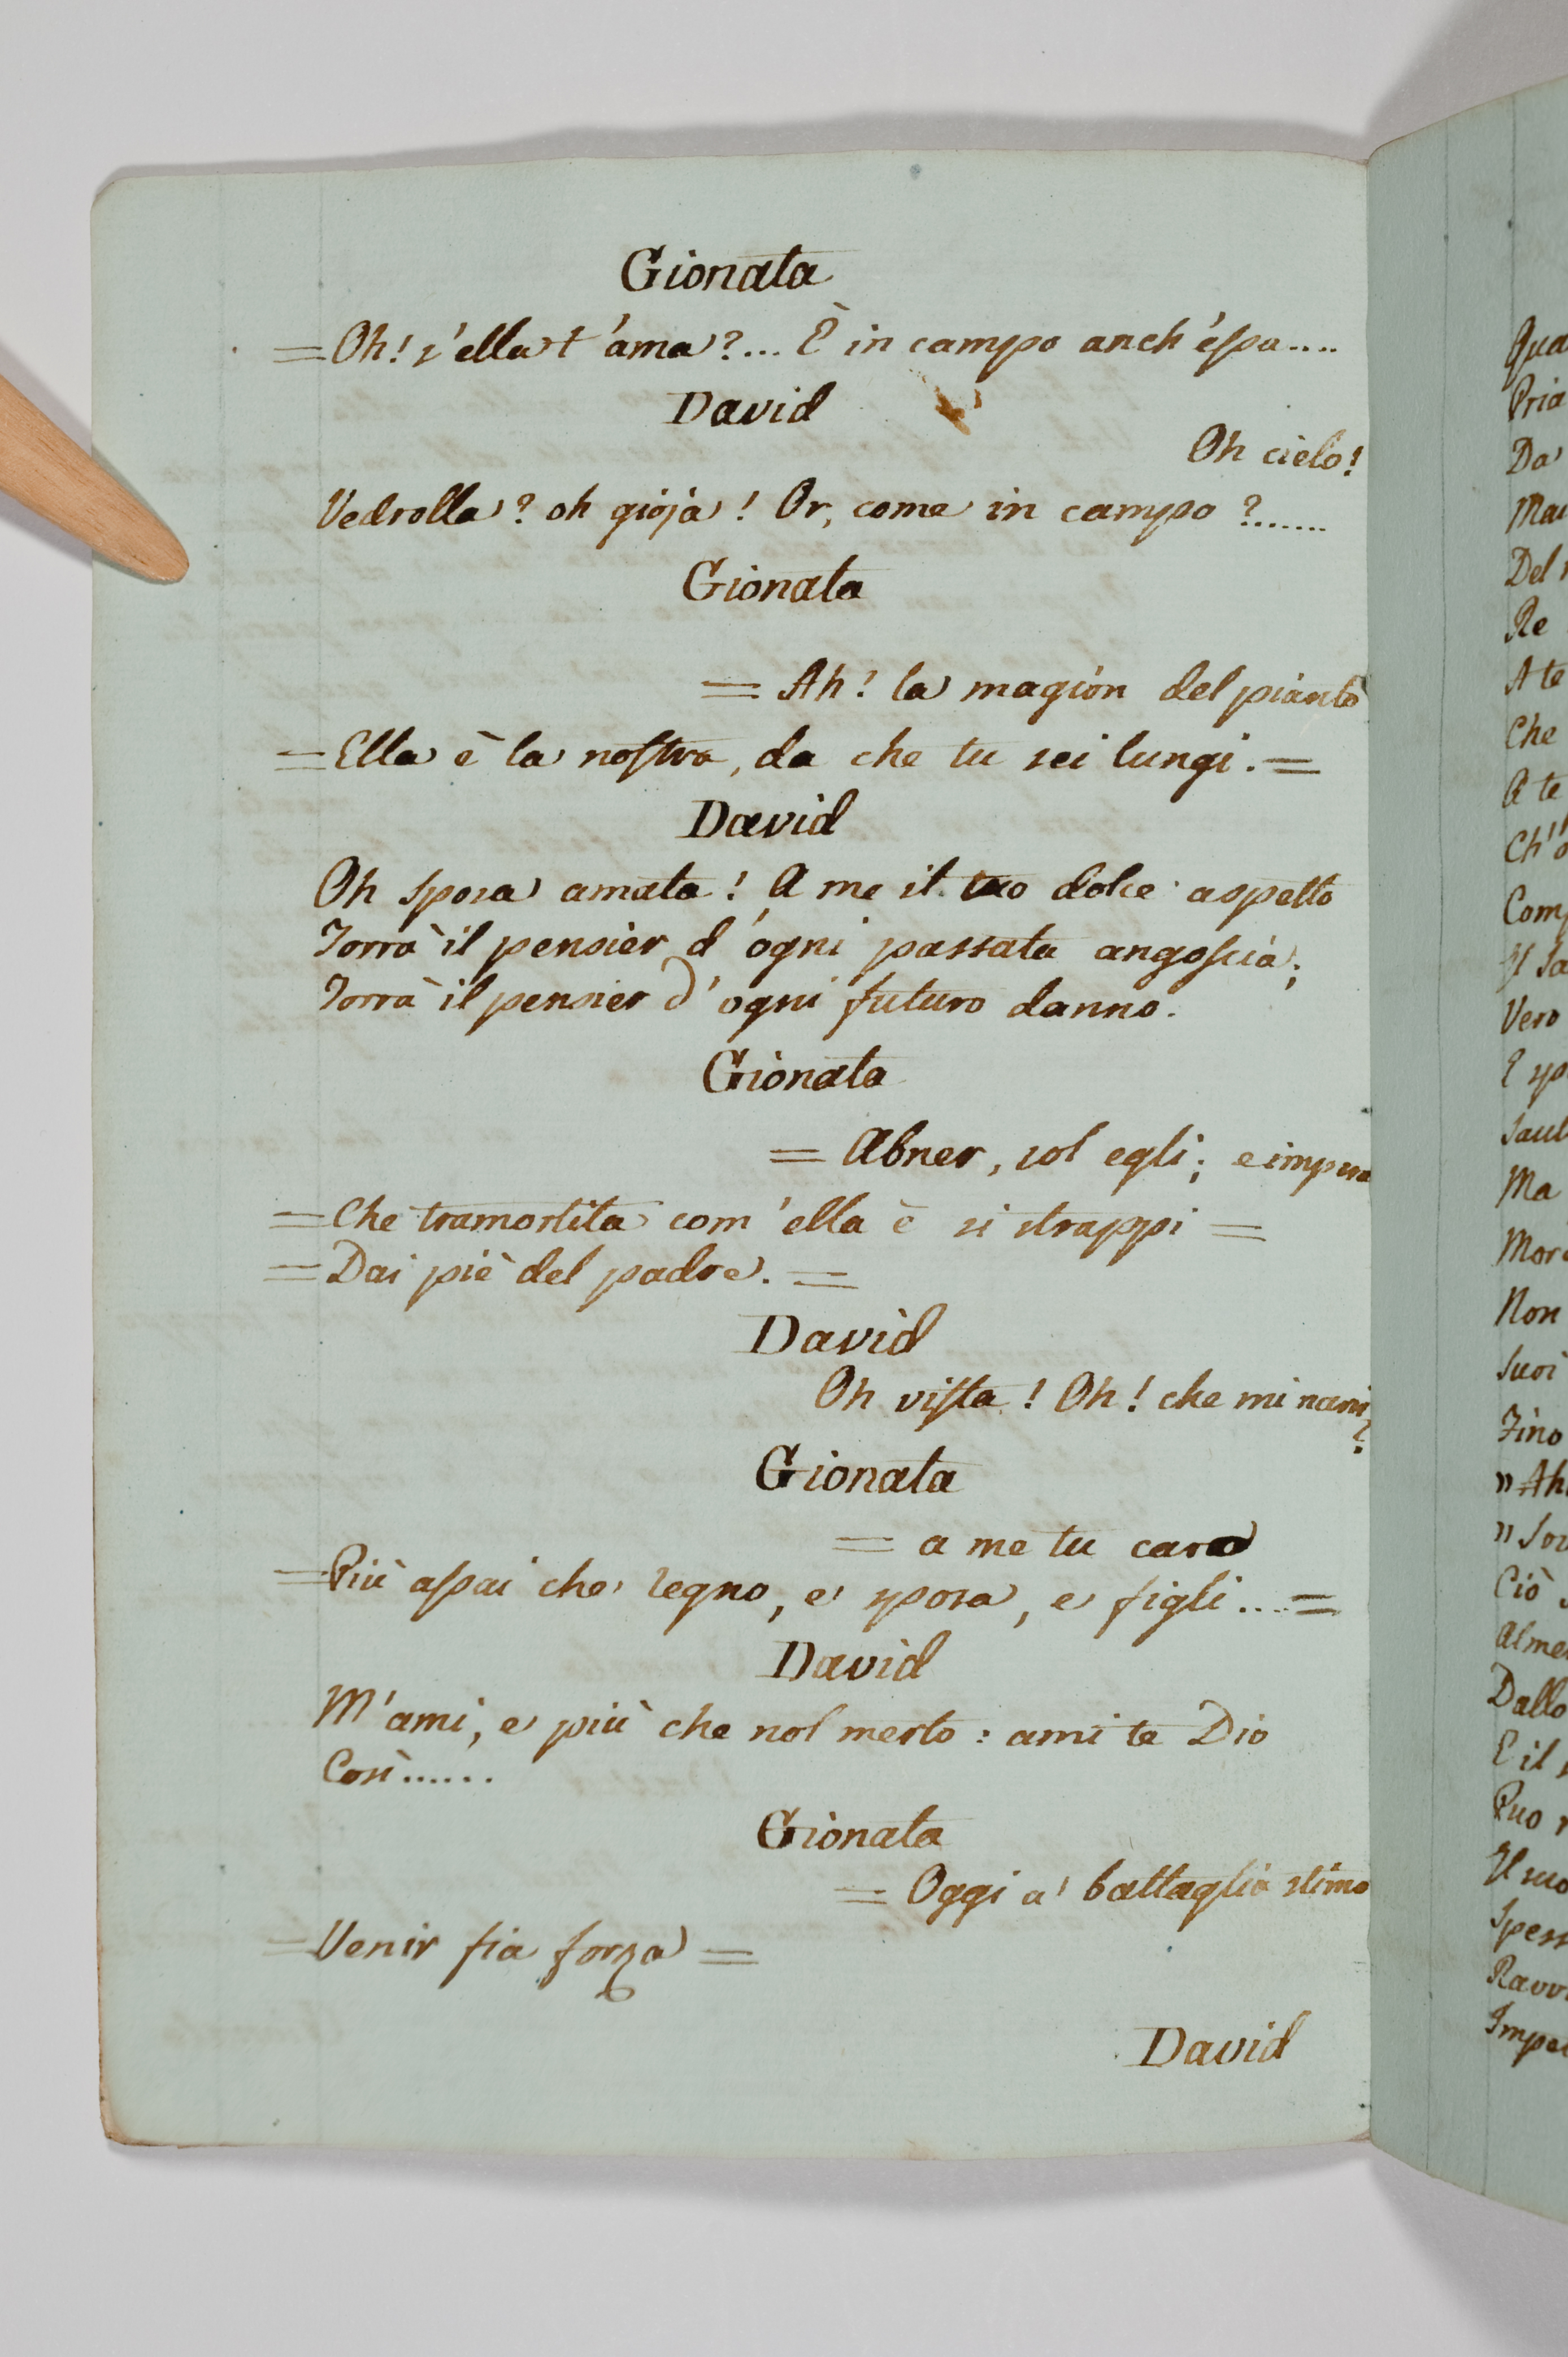 Gionata
= Oh! s'ella t'ama?... È in campo anch'essa....
David
Oh cielo!
Vedrolla? oh gioja! Or, come in campo?.......
Gionata
= Ah! la magion del pianto
= Ella è la nostra, da che tu sei lungi. =
David
Oh sposa amata! A me il tuo dolce aspetto
Torrà il pensier d'ogni passata angoscia;
Torrà il pensier d'ogni futuro danno.
Gionata
= Abner, sol egli; e impera
= Che tramortita com'ella è si strappi =
= Dai piè del padre. =
David
Oh vista! Oh! che mi narri
?
Gionata
= a me tu caro
= Più assai che regno, e sposa, e figli.... =
David
M'ami, e più che nol merto: ami te Dio
Così......
Gionata
= Oggi a' battaglia stimo
= Venir fia forza =
David
Qua
Pria
Da
Mai
Del
Re
A te
Che
A te
Ch'
Com
Il Sa
Vero
E
Saul
Ma
Mor
Non
Suoi
Fino
" Ah
" Sov
Ciò
Alme
Dallo
E il
Può
Il suo
Spess
Ravv
Impe